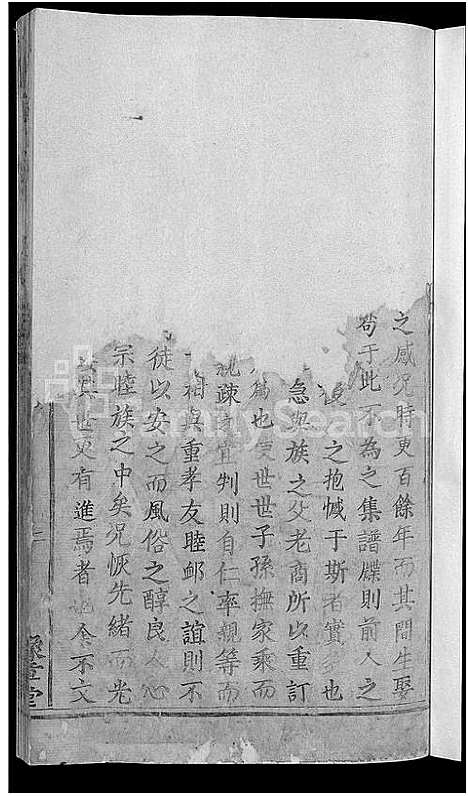 之感况時更百餘年而其間生娶
苟于此不為之集譜牒則前人之
之抱憾于斯者實多也
急與族之父老商所以重訂
為也使世世子孫撫家乘而
疎之宜判則自仁率親等而
相與重孝友睦卹之誼則不
徒以安之而風俗之醇良人心
宗睦族之中矣况恢先緒而光
其世更有進焉者也余不文
二
堂
FamilySearch